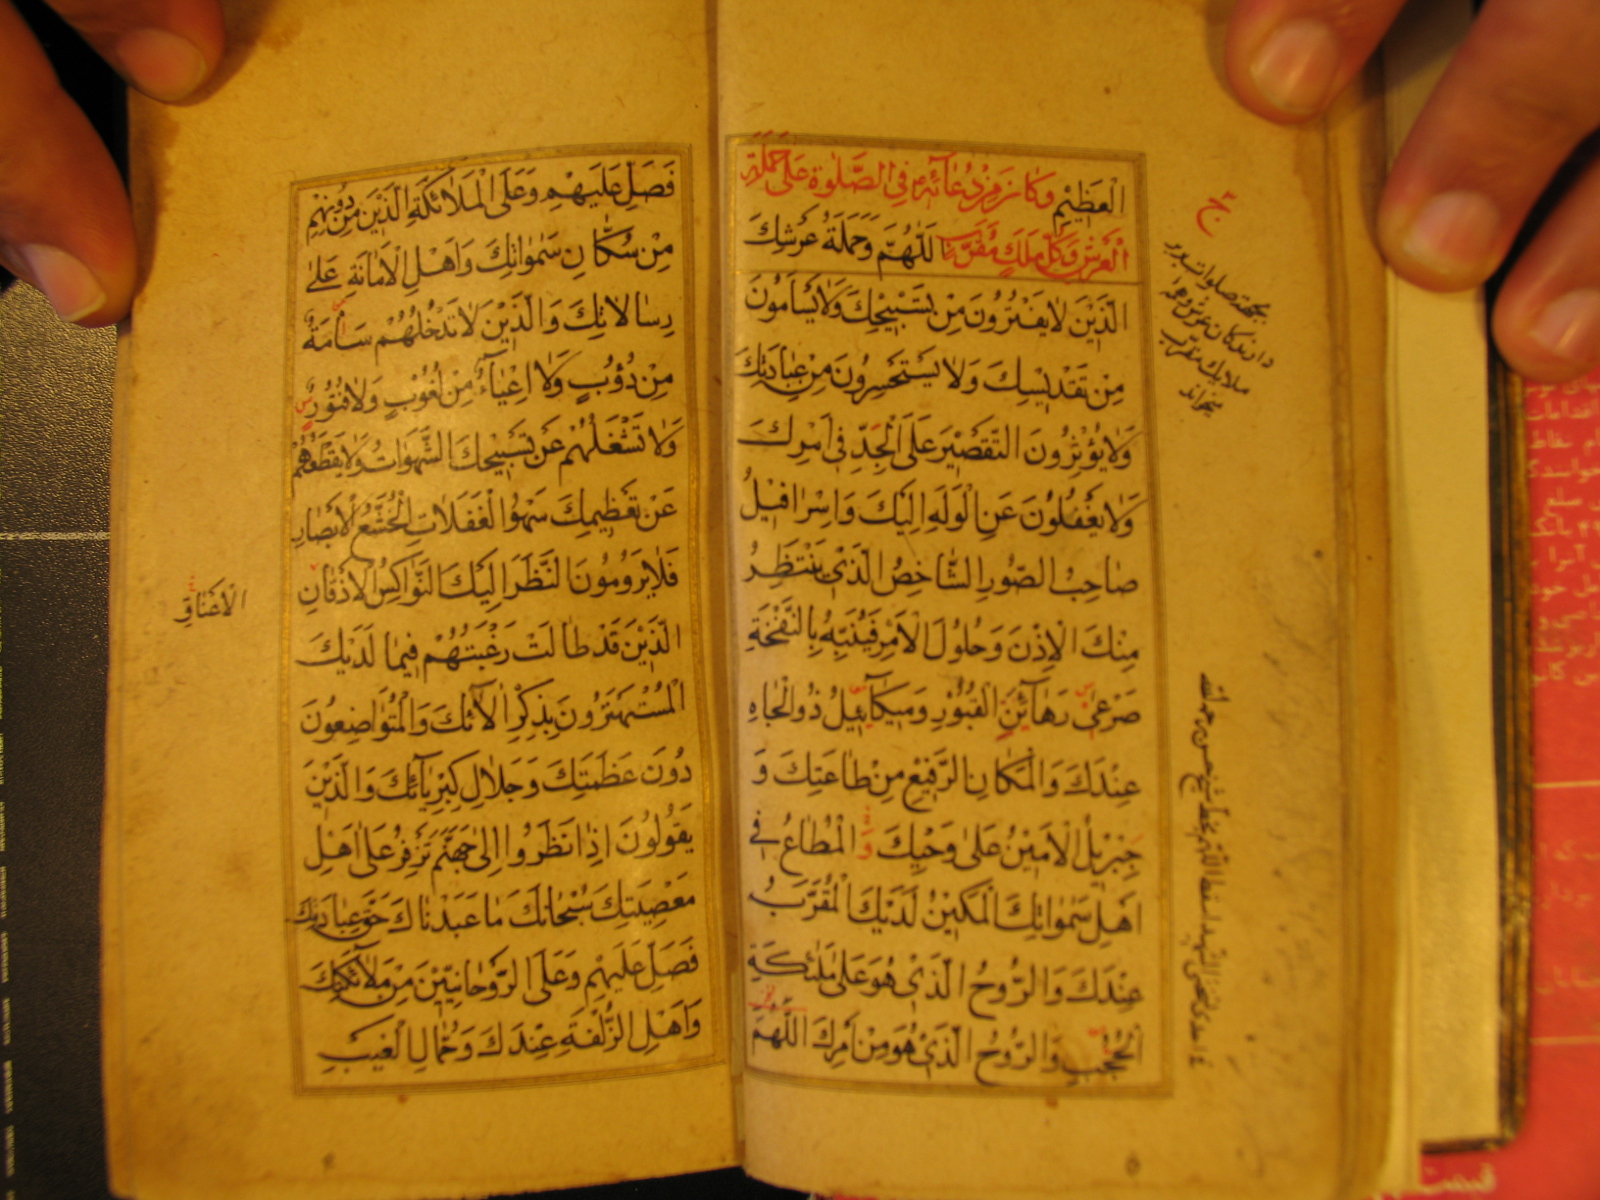 الْعَظِيْمِ وَكَانَ مِنْ دُعَائِهِ فِي الصَّلٰوةِ عَلٰى حَمَلَةِ
الْعَرْشِ وَكُلِّ مَلَكٍ مُقَرَّبٍ اَللّٰهُمَّ وَحَمَلَةُ عَرْشِكَ
الَّذِيْنَ لَا يَفْتُرُوْنَ مِنْ تَسْبِيْحِكَ وَلَا يَسْأَمُوْنَ
مِنْ تَقْدِيْسِكَ وَلَا يَسْتَحْسِرُوْنَ مِنْ عِبَادَتِكَ
وَلَا يُؤْثِرُوْنَ التَّقْصِيْرَ عَلَى الْجِدِّ فِي اَمْرِكَ
وَلَا يَغْفُلُوْنَ عَنِ الْوَلَهِ اِلَيْكَ وَاِسْرَافِيْلُ
صَاحِبُ الصُّوْرِ الشَّاخِصُ الَّذِيْ يَنْتَظِرُ
مِنْكَ الْاِذْنَ وَحُلُوْلَ الْاَمْرِ فَيُنَبِّهُ بِالنَّفْخَةِ
صَرْعٰى رَهَائِنِ الْقُبُوْرِ وَمِيْكَائِيْلُ ذُو الْجَاهِ
عِنْدَكَ وَالْمَكَانِ الرَّفِيْعِ مِنْ طَاعَتِكَ وَ
جِبْرِيْلُ الْاَمِيْنُ عَلٰى وَحْيِكَ وَ الْمُطَاعُ فِي
اَهْلِ سَمٰوَاتِكَ الْمَكِيْنُ لَدَيْكَ الْمُقَرَّبُ
عِنْدَكَ وَالرُّوْحُ الَّذِيْ هُوَ عَلٰى مَلٰئِكَةِ
الْحُجُبِ وَالرُّوْحُ الَّذِيْ هُوَ مِنْ اَمْرِكَ اَللّٰهُمَّ
بجهة صلوات بر
دارندگان عرش و هر
ملايك مقرب
بخواند
فَصَلِّ عَلَيْهِمْ وَعَلَى الْمَلَائِكَةِ الَّذِيْنَ مِنْ دُوْنِهِمْ
مِنْ سُكَّانِ سَمٰوَاتِكَ وَاَهْلِ الْاَمَانَةِ عَلٰى
رِسَالَاتِكَ وَالَّذِيْنَ لَا تَدْخُلُهُمْ سَأْمَةٌ
مِنْ دُؤُوْبٍ وَلَا اِعْيَاءٌ مِنْ لُغُوْبٍ وَلَا فُتُوْرٌ
وَلَا تَشْغَلُهُمْ عَنْ تَسْبِيْحِكَ الشَّهَوَاتُ وَلَا يَقْطَعُهُمْ
عَنْ تَعْظِيْمِكَ سَهْوُ الْغَفَلَاتِ الْخُشَّعُ الْاَبْصَارِ
فَلَا يَرُوْمُوْنَ النَّظَرَ اِلَيْكَ النَّوَاكِسُ الْاَذْقَانِ
الَّذِيْنَ قَدْ طَالَتْ رَغْبَتُهُمْ فِيْمَا لَدَيْكَ
الْمُسْتَهْتَرُوْنَ بِذِكْرِ اٰلَائِكَ وَالْمُتَوَاضِعُوْنَ
دُوْنَ عَظَمَتِكَ وَجَلَالِ كِبْرِيَائِكَ وَالَّذِيْنَ
يَقُوْلُوْنَ اِذَا نَظَرُوْا اِلٰى جَهَنَّمَ تَزْفِرُ عَلٰى اَهْلِ
مَعْصِيَتِكَ سُبْحَانَكَ مَا عَبَدْنَاكَ حَقَّ عِبَادَتِكَ
فَصَلِّ عَلَيْهِمْ وَعَلَى الرَّوْحَانِيِّيْنَ مِنْ مَلَائِكَتِكَ
وَاَهْلِ الزُّلْفَةِ عِنْدَكَ وَحُمَّالِ الْغَيْبِ
الْاَعْنَاقِ